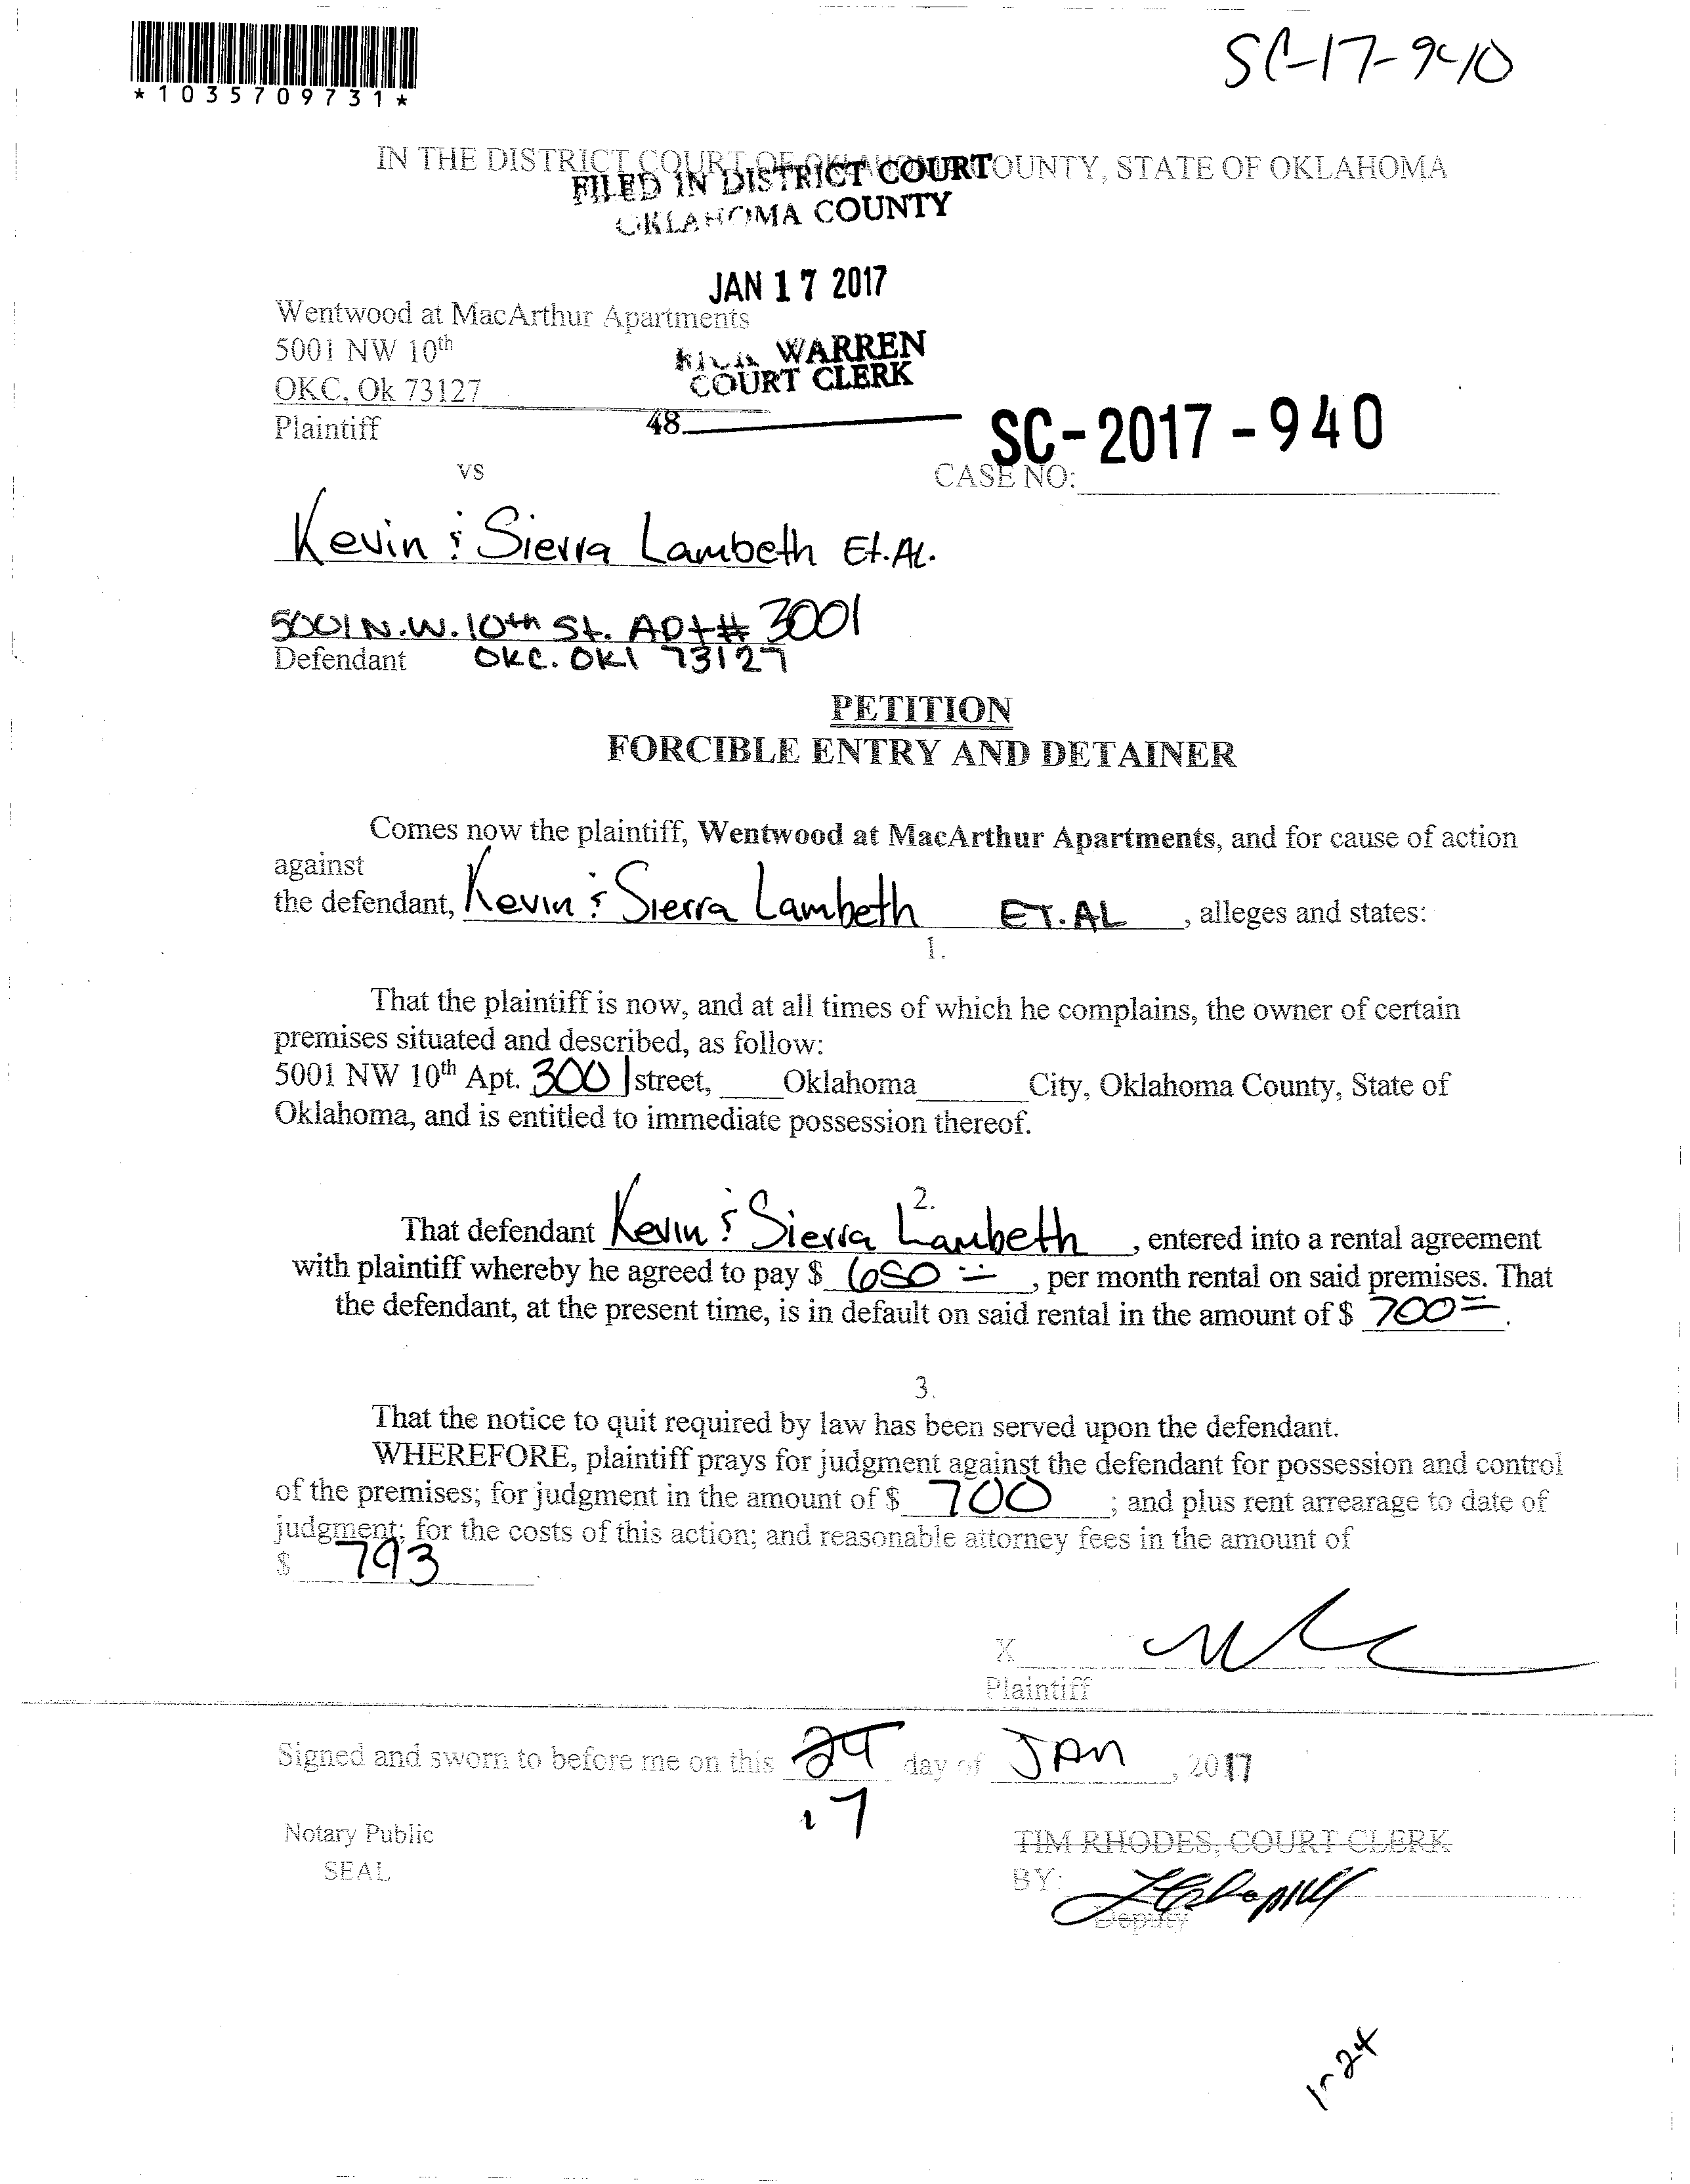 SC-17-940
*1035709731*
IN THE DISTRICT COURT OF OKLAHOMA COUNTY, STATE OF OKLAHOMA
FILED IN DISTRICT COURT
OKLAHOMA COUNTY
JAN 17 2017
Wentwood at MacArthur Apartments
5001 NW 10th
RICK WARREN
COURT CLERK
OKC, Ok 73127
48
Plaintiff
SC-2017-940
vs
CASE NO:
Kevin & Sierra Lambeth Et.AL.
5001 N.W. 10th St. APt# 3001
Defendant OKC. OKl 73127
PETITION
FORCIBLE ENTRY AND DETAINER
Comes now the plaintiff, Wentwood at MacArthur Apartments, and for cause of action
against
the defendant, Kevin & Sierra Lambeth ET.AL, alleges and states:
1.
That the plaintiff is now, and at all times of which he complains, the owner of certain
premises situated and described, as follow:
5001 NW 10th Apt. 3001 street, Oklahoma City, Oklahoma County, State of
Oklahoma, and is entitled to immediate possession thereof.
2.
That defendant Kevin & Sierra Lambeth, entered into a rental agreement
with plaintiff whereby he agreed to pay $ 650, per month rental on said premises. That
the defendant, at the present time, is in default on said rental in the amount of $ 700.
3.
That the notice to quit required by law has been served upon the defendant.
WHEREFORE, plaintiff prays for judgment against the defendant for possession and control
of the premises; for judgment in the amount of $ 700; and plus rent arrearage to date of
judgment; for the costs of this action; and reasonable attorney fees in the amount of
$ 793
X
Plaintiff
Signed and sworn to before me on this 24 day of JAN, 2017
17
Notary Public
TIM RHODES, COURT CLERK
SEAL
BY:
Deputy
1-24